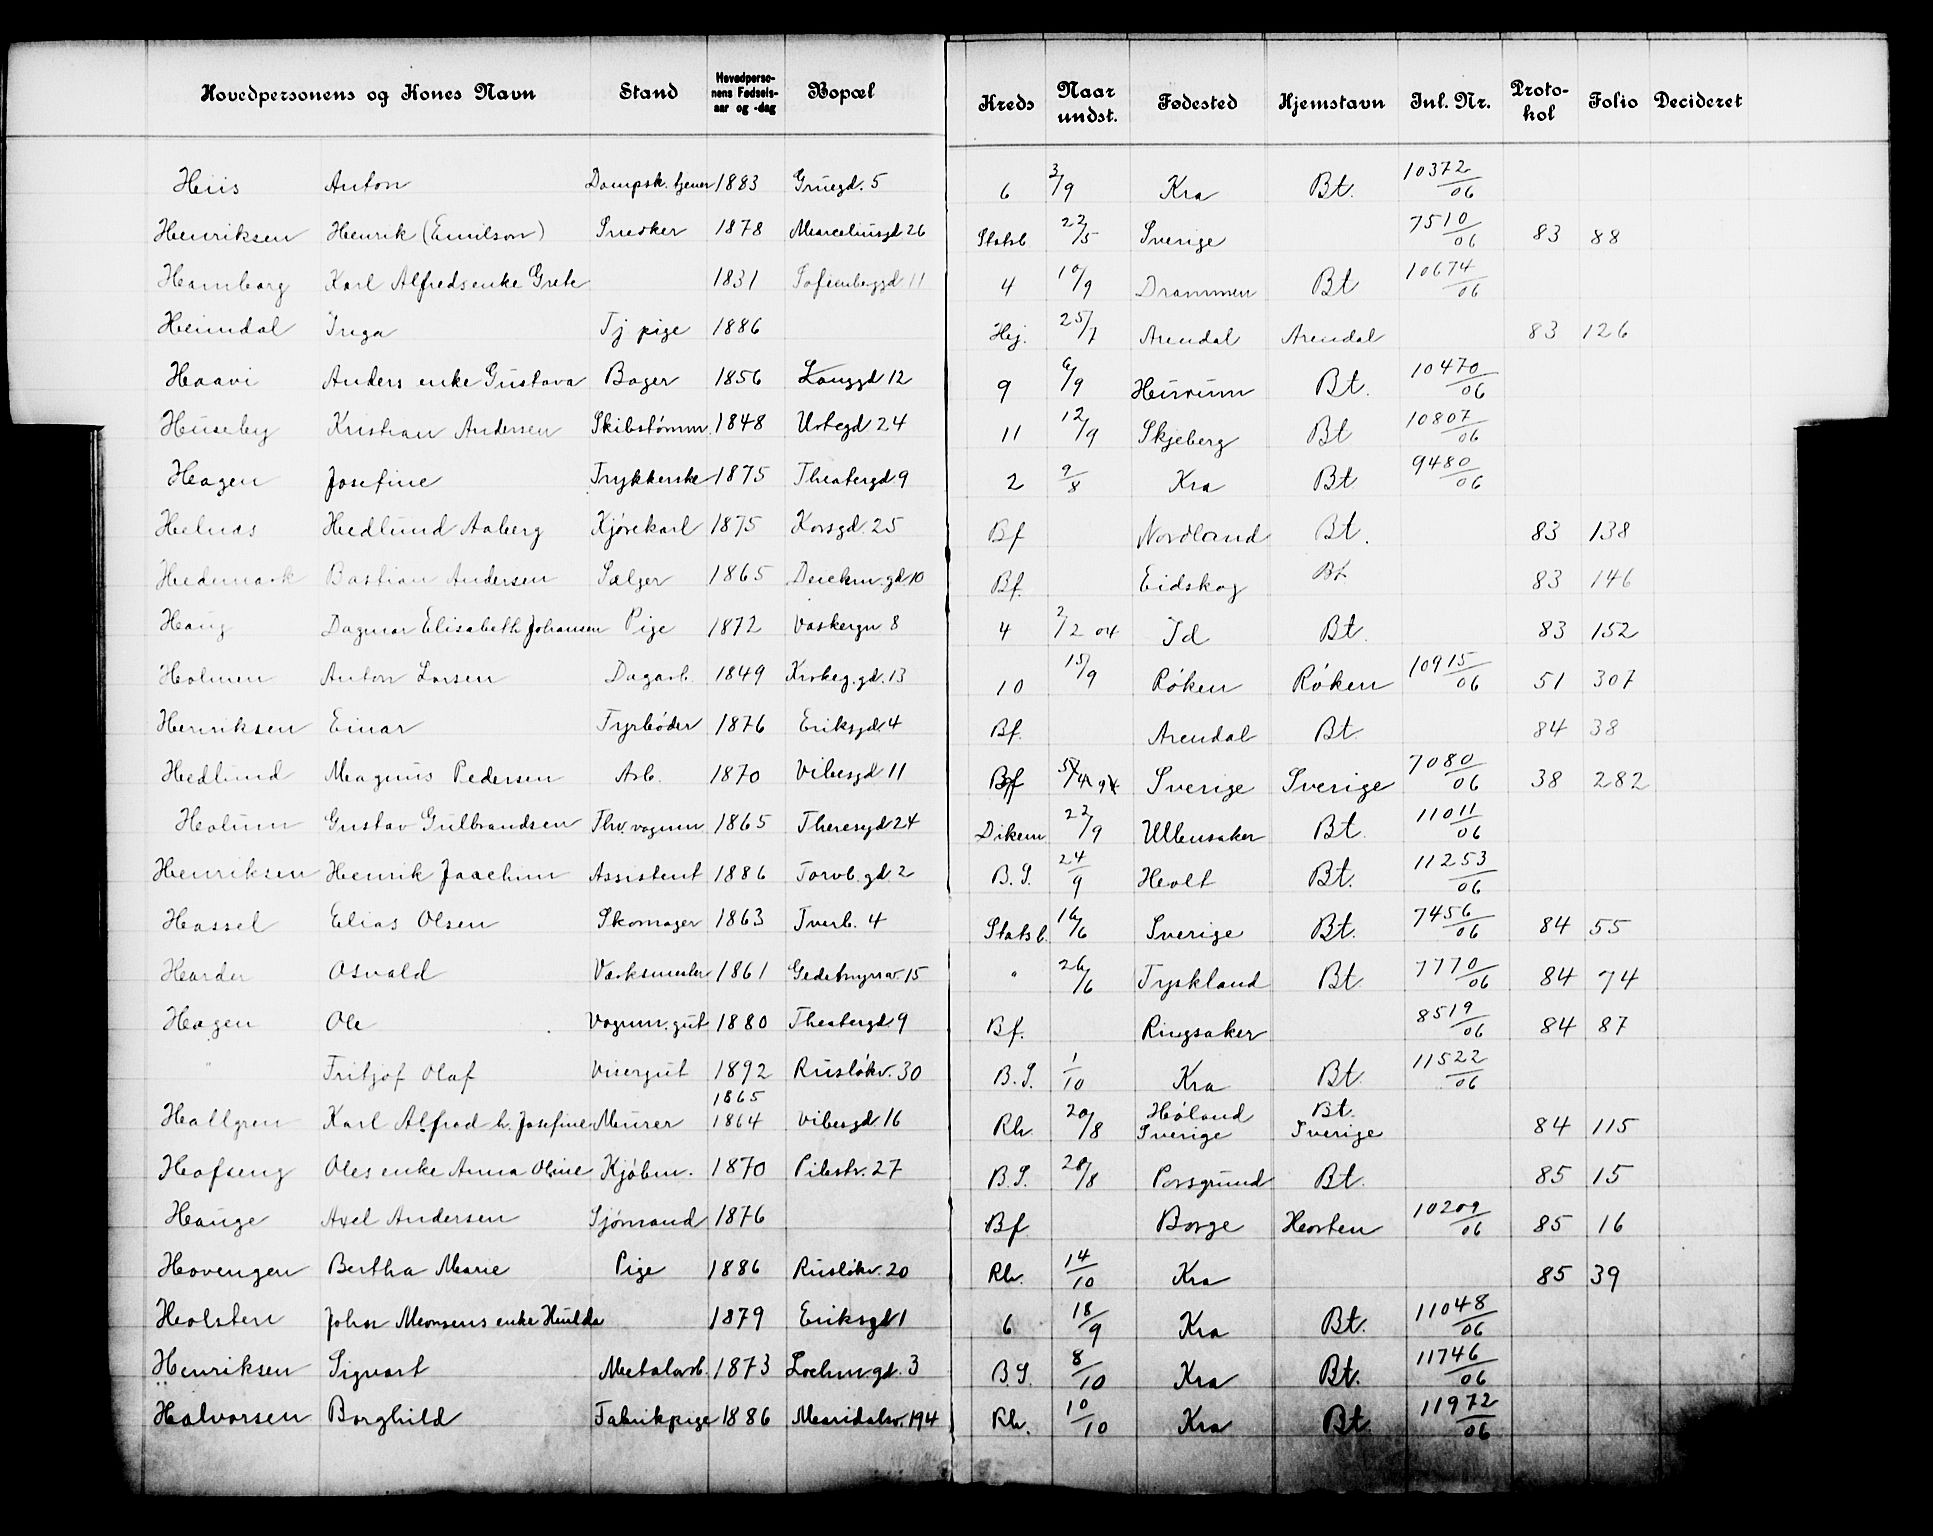 Hovedpersonens og Kones Navn Stand Hovedpersonens Fødselsaar og -dag Bopæl Kreds Naar undst. Fødested Hjemstavn Inl. Nr. Protokol Folio Decideret
Hiis Anton Dampsk. tjener 1883 Gruegd. 5 6 3/9 Kra Bt. 10372/06
Henriksen Henrik (Emilson) Snedker 1878 Marceliusgd 26 Statsb 22/5 Sverige 7510/06 83 88
Hamborg Karl Alfreds enke Grete 1831 Sofienbeggd 11 4 10/9 Drammen Bt 10674/06
Heimdal Inga Tj pige 1886 Hej. 25/7 Arendal Arendal 83 126
Haavi Anders enke Gustava Bager 1856 Langgd 12 9 6/9 Hurum Bt. 10470/06
Huseby Kristian Andersen Skibstømm. 1848 Urtegd 24 11 12/9 Skjeberg Bt 10807/06
Hagen Josefine Trykkerske 1875 Theatergd 9 2 9/8 Kra Bt 9480/06
Helnæs Hedlund Aaberg Kjørekarl 1875 Korsgd. 25 Bf Nordland Bt. 83 138
Hedemark Bastian Andersen Sælger 1865 Deichm. gd 10 Bf. Eidskog Bt 83 146
Haug Dagmar Elisabeth Johansen Pige 1872 Vaskergn 8 4 2/2 04 Id Bt. 83 152
Holmen Anton Larsen Dagarb. 1849 Kirkeg. gd. 13 10 15/9 Røken Røken 10915/06 51 307
Henriksen Einar Fyrbøder 1876 Eriksgd. 4 Bf. Arendal Bt. 84 38
Hedlund Magnus Pedersen Arb. 1870 Vibesgd 11 Bf Sverige Sverige 7080/06 38 282
Holum Gustav Gulbrandsen Thv. vognm 1865 Theresgd 24 Dikem 22/9 Ullensaker Bt. 11011/06
Henriksen Henrik Joachim Assistent 1886 Torvb. gd 2 B. S. 24/9 Holt Bt. 11253/06
Hassel Elias Olsen Skomager 1863 Tverb. 4 Statsb. 16/6 Sverige Bt. 7456/06 84 55
Harder Osvald Værksmester 1861 Gedebmyrsv. 15 " 26/6 Tyskland Bt 7770/06 84 74
Hagen Ole Vognm. gut 1880 Theatergd 9 Bf. Ringsaker 8519/06 84 87
" Fritjof Olaf Visergut 1892 Rusløkv. 30 B. S. 1/10 Kra Bt. 11522/06
1865 Høland Bt.
Hallgren Karl Alfred h. Josefine Murer 1864 Vibesgd 16 Rh. 20/8 Sverige Sverige 84 115
Hofseng Oles enke Anna Oline Kjøbm. 1870 Pilestr. 27 B. S. 28/8 Porsgrund Bt. 85 15
Hauge Axel Andersen Sjømand 1876 Bf Borge Horten 10209/06 85 16
Hovengen Bertha Marie Pige 1886 Rusløkv. 20 Rh. 14/10 Kra 85 39
Holsten Johan Monsens enke Hulda 1879 Eriksgd 1 6 18/9 Kra Bt. 11048/06
Henriksen Sigvart Metalarb. 1873 Lochm. gd. 3 B. S. 8/10 Kra Bt. 11746/06
Halvorsen Borghild Fabrikpige 1886 Maridalsv. 194 Rh. 10/10 Kra Bt. 11972/06